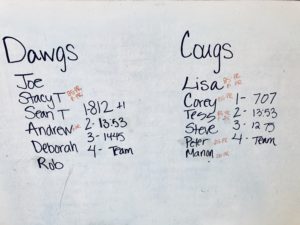 Dawgs
Joe
Stacy T
Sean T 1-812 +1
Andrew 2-13:53
Deborah 3-1445
Rob 4-Team
Cougs
Lisa
Corey 1-707
Tess 2-13:53
Steve 3-1275
Peter 4-Team
Marion